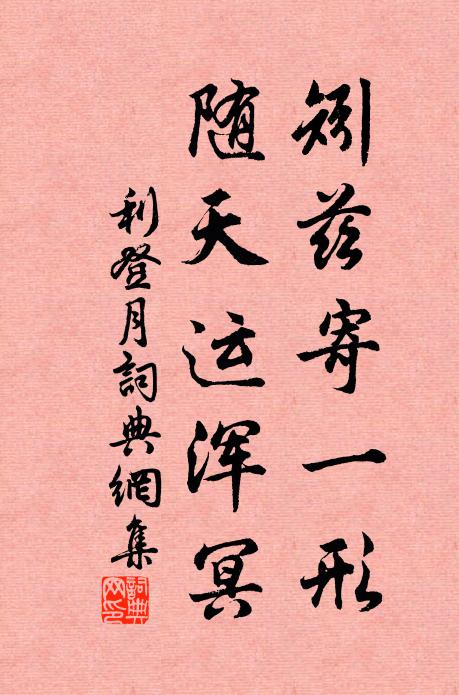 矧兹寄一形
随天运浑冥
利登月詞典網集
詞典网印